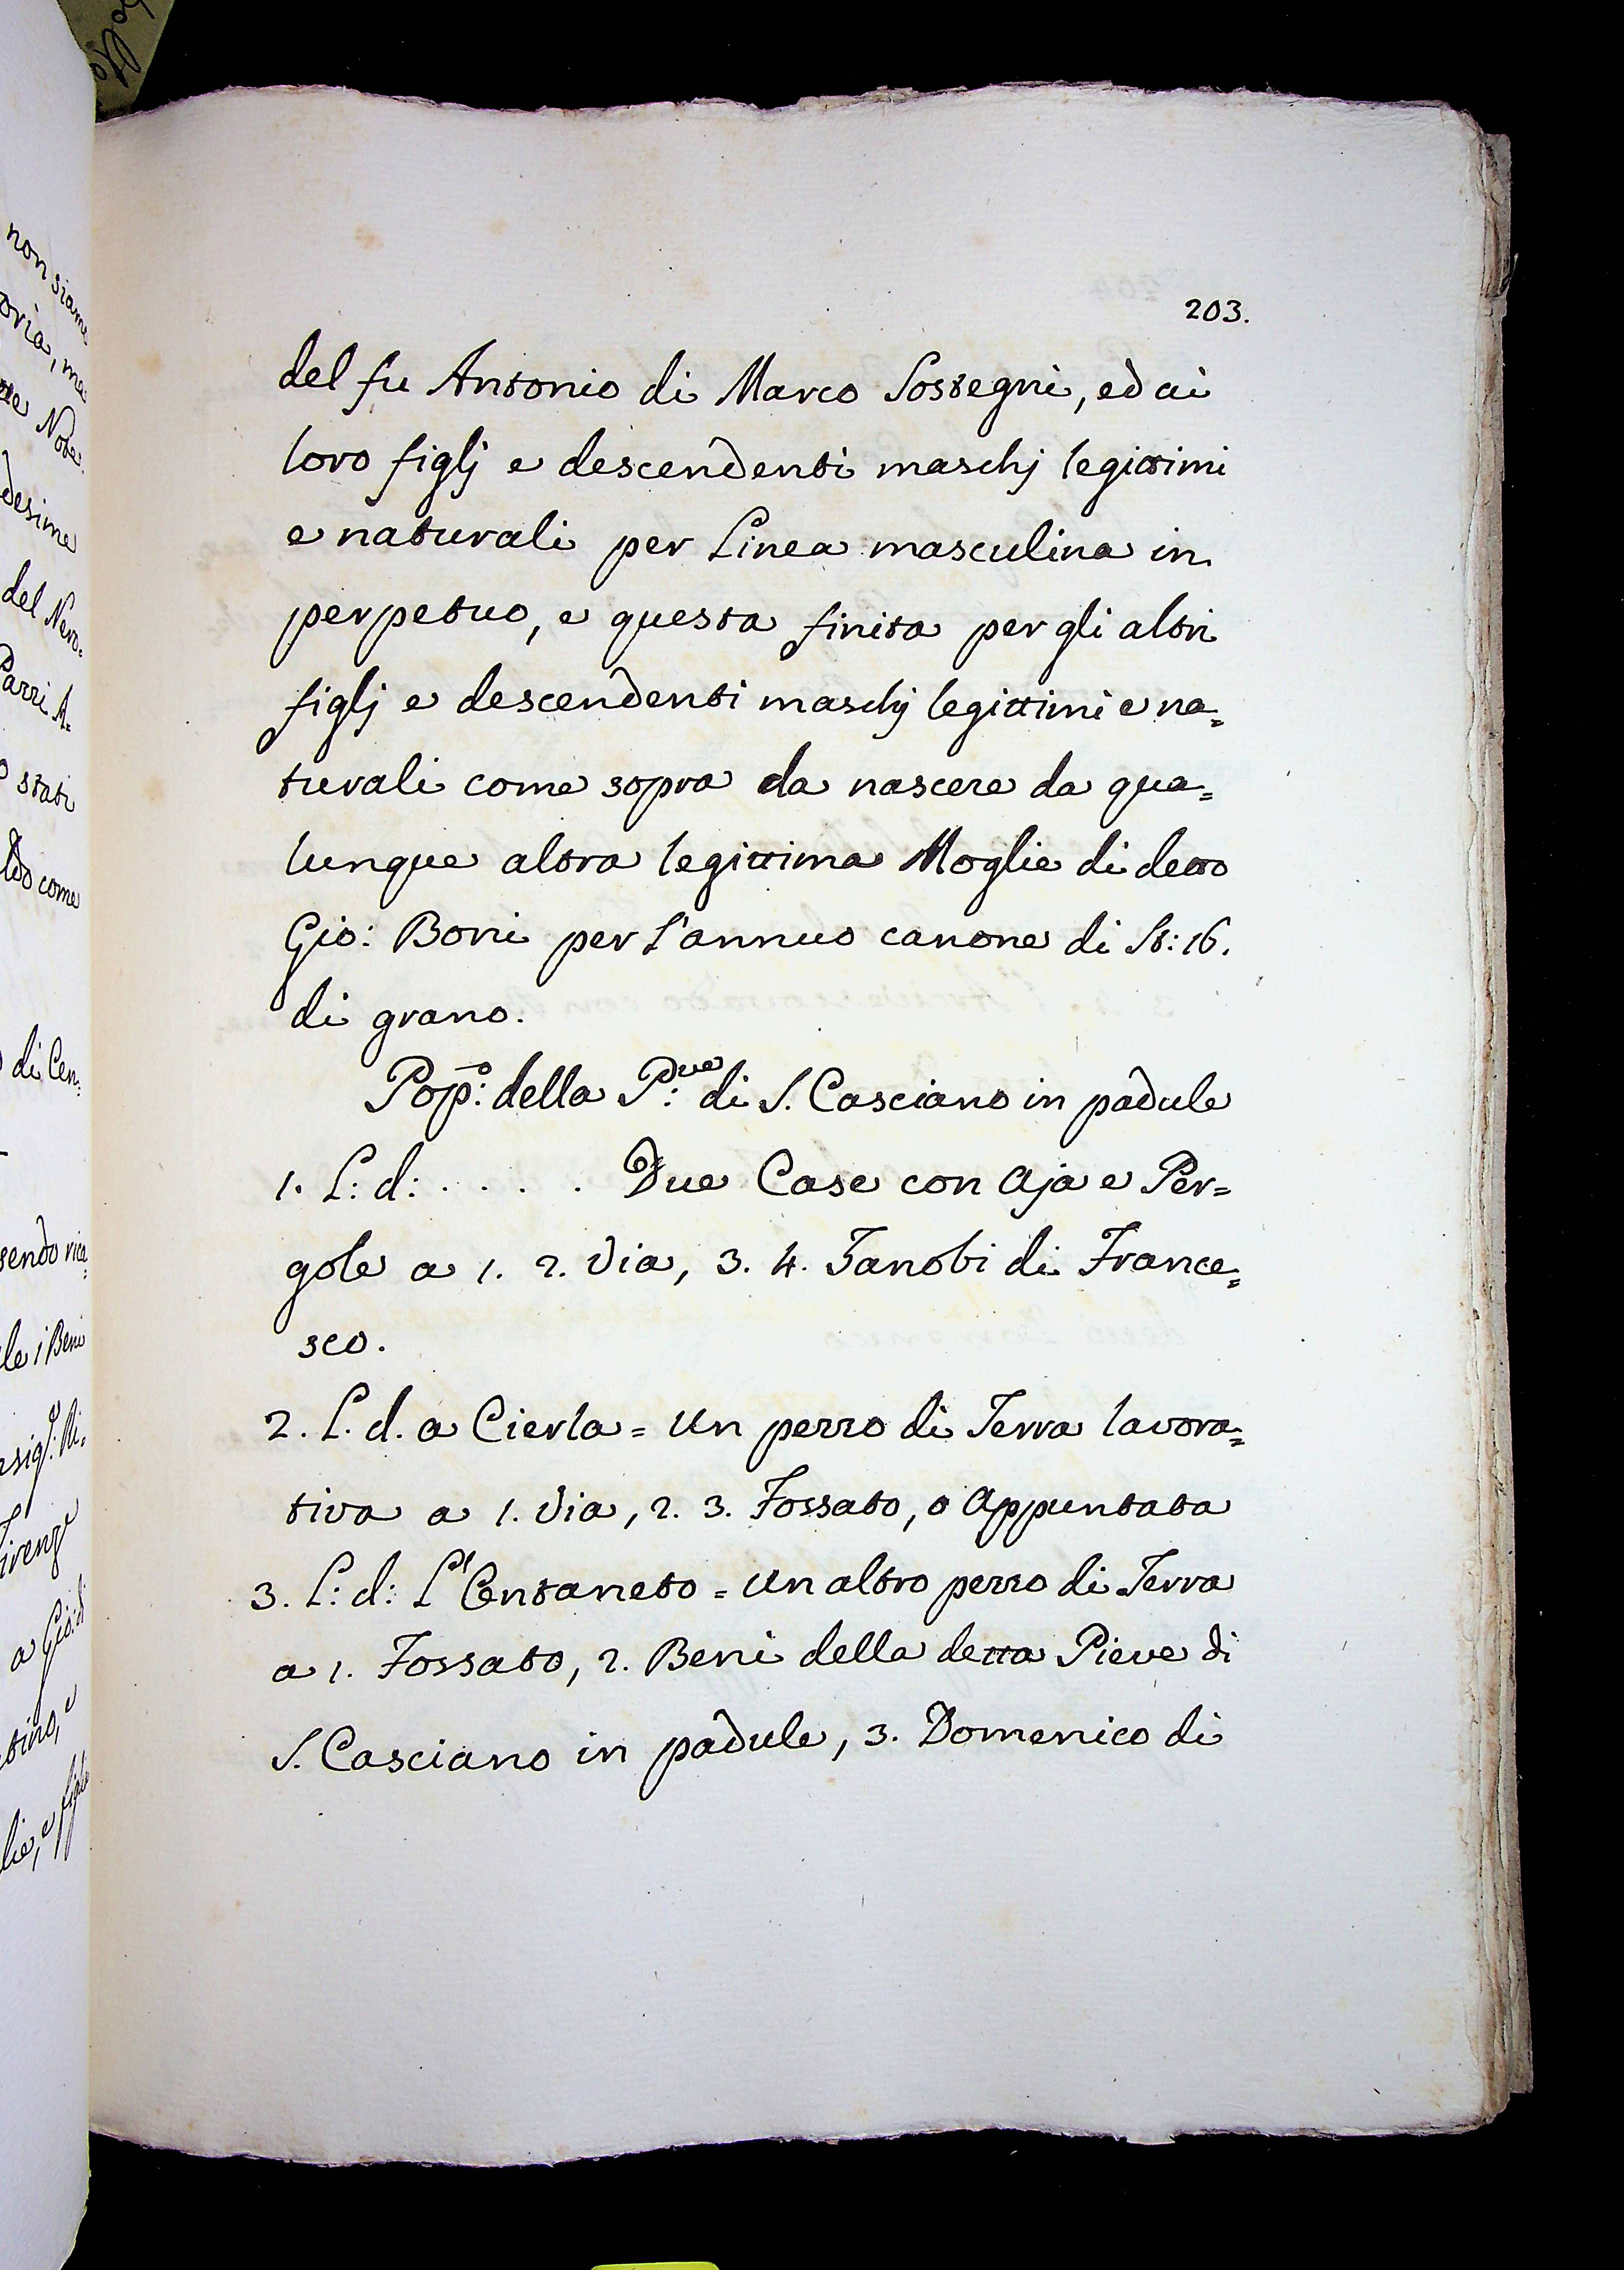 203.
del fu Antonio di Marco Sostegni, ed ai
loro figlj e descendenti maschj legittimi
e naturali per Linea masculina in
perpetuo, e questa finita per gli altri
figlj e descendenti maschj legittimi e na=
turali come sopra da nascere da qua=
lunque altra legittima Moglie di detto
Gio: Boni per l'annuo canone di St: 16.
di grano.
Pop:o della P:ve di S. Casciano in padule
1. L: d: . . . . Due Case con Aja e Per=
gole a 1. 2. Via, 3. 4. Zanobi di France=
sco.
2. L. d. a Cierla = Un pezzo di Terra lavora=
tiva a 1. Via, 2. 3. Fossato, o Appuntata
3. L: d: L'Ontaneto = Un altro pezzo di Terra
a 1. Fossato, 2. Beni della detta Pieve di
S. Casciano in padule, 3. Domenico di
non siamo
Note
desime
del Nero
Parri A=
stati
come
di Cen=
sendo rica=
le i Beni
a Gio: di